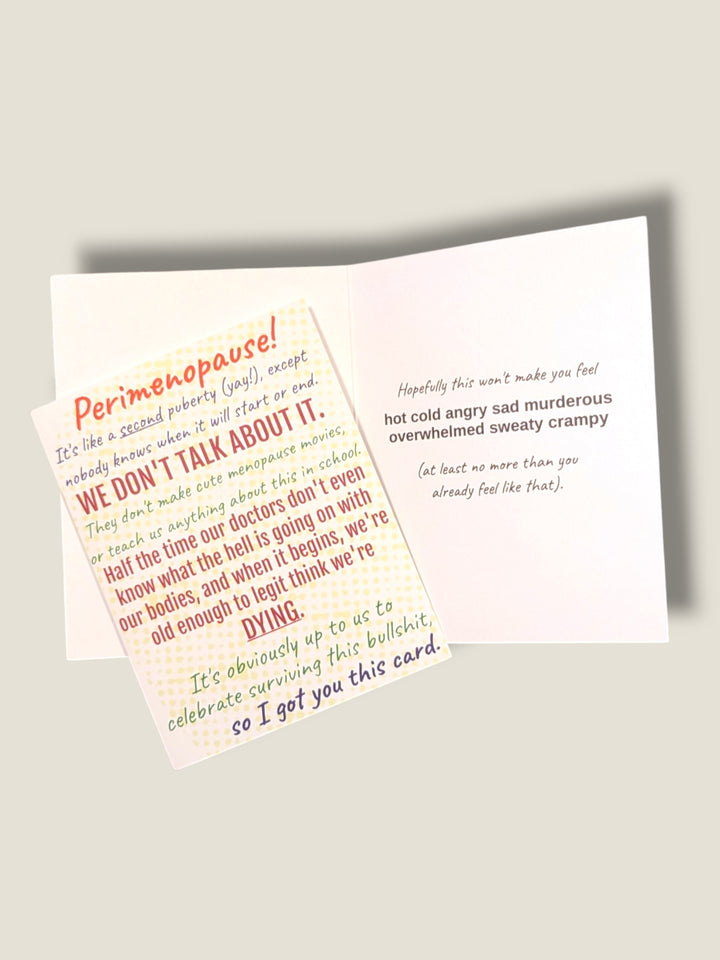 Perimenopause!
It's like a second puberty (yay!), except
nobody knows when it will start or end.
WE DON'T TALK ABOUT IT.
They don't make cute menopause movies,
or teach us anything about this in school.
Half the time our doctors don't even
know what the hell is going on with
our bodies, and when it begins, we're
old enough to legit think we're
DYING.
It's obviously up to us to
celebrate surviving this bullshit,
so I got you this card.
Hopefully this won't make you feel
hot cold angry sad murderous
overwhelmed sweaty crampy
(at least no more than you
already feel like that).